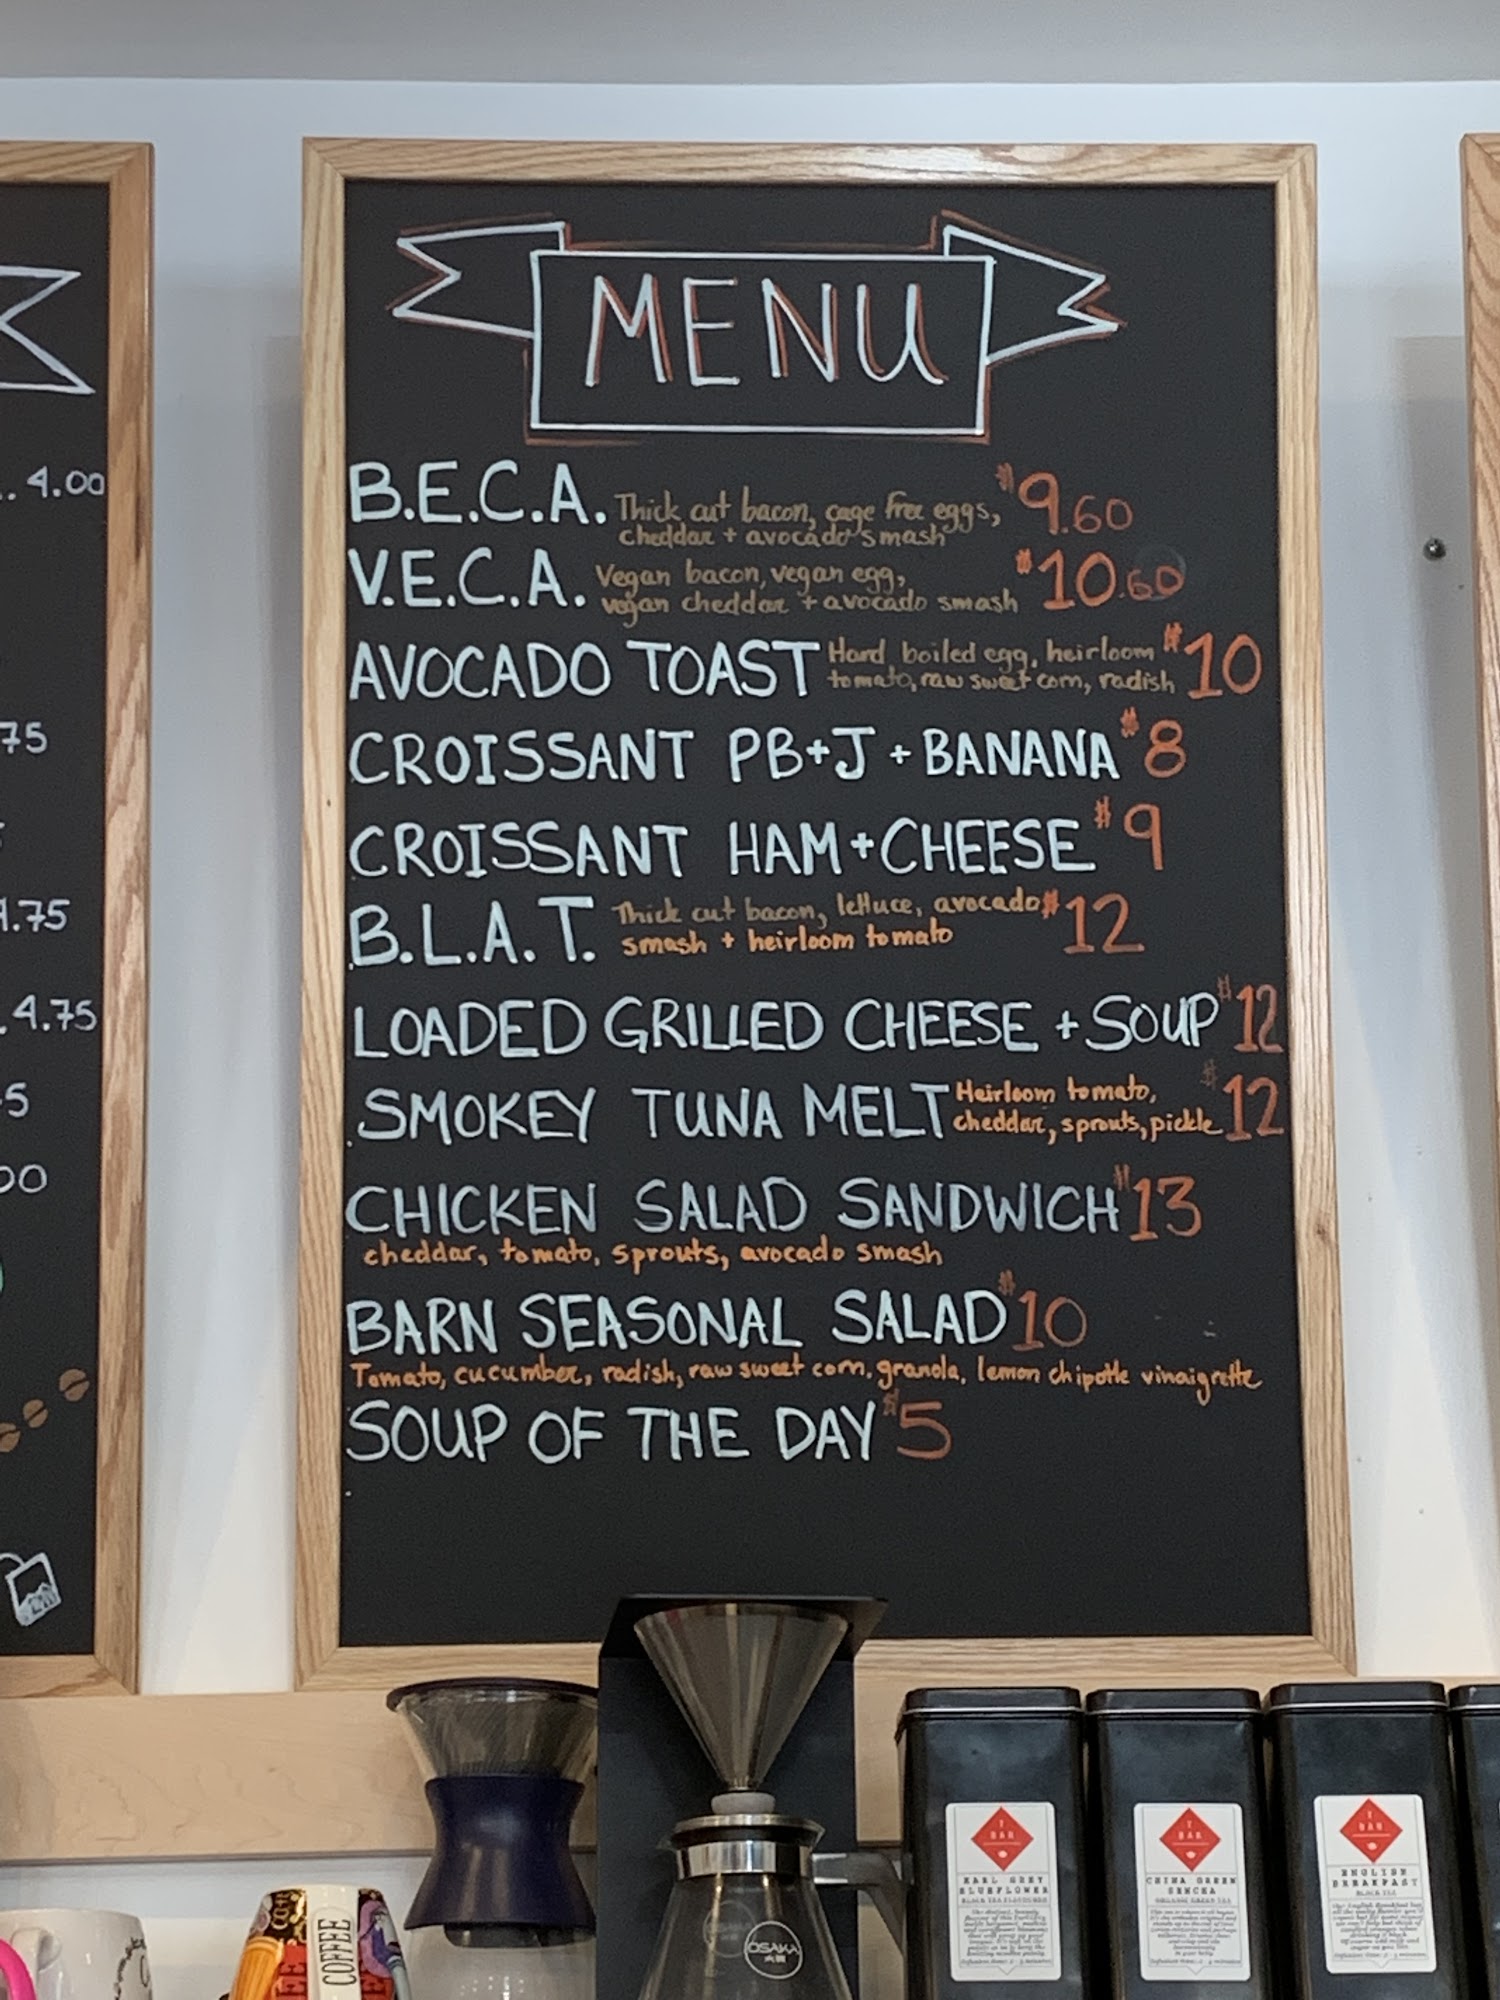 MENU
B.E.C.A. Thick cut bacon, cage free eggs, $9.60
cheddar + avocado smash
V.E.C.A. Vegan bacon, vegan egg, $10.60
vegan cheddar + avocado smash
AVOCADO TOAST Hard boiled egg, heirloom $10
tomato, raw sweet corn, radish
CROISSANT PB+J + BANANA $8
CROISSANT HAM + CHEESE $9
B.L.A.T. Thick cut bacon, lettuce, avocado $12
smash + heirloom tomato
LOADED GRILLED CHEESE + SOUP $12
SMOKEY TUNA MELT Heirloom tomato, $12
cheddar, sprouts, pickle
CHICKEN SALAD SANDWICH $13
cheddar, tomato, sprouts, avocado smash
BARN SEASONAL SALAD $10
Tomato, cucumber, radish, raw sweet corn, granola, lemon chipotle vinaigrette
SOUP OF THE DAY $5
.. 4.00
75
.75
. 4.75
5
00
COFFEE
OSAKA
T
BAR
EARL GREY
BLUEFLOWER
T
BAR
CHINA GREEN
SENCHA
ORGANIC GREEN TEA
T
BAR
ENGLISH
BREAKFAST
BLACK TEA